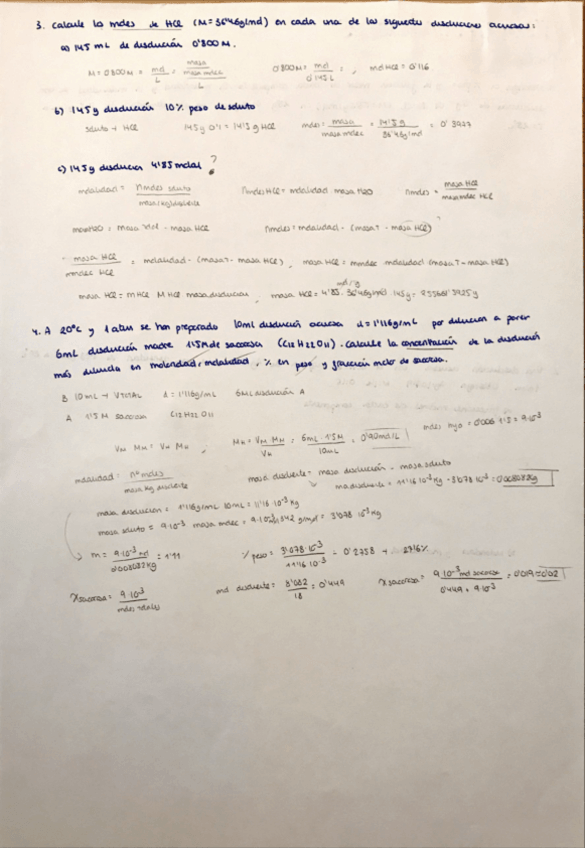 3. Calcule los moles de HCl (M=36'46g/mol) en cada una de las siguientes disoluciones acuosas:
a) 145 mL de disolución 0'800M.
M = 0'800M = mol/L = masa/masa molec/L 0'800M = mol/0'145L ; mol HCl = 0'116
b) 145g disolución 10% peso de soluto
soluto → HCl 145g · 0'1 = 14'5g HCl moles = masa/masa molec = 14'5g/36'46g/mol = 0'3977
c) 145g disolucion 4'85 molal ?
molalidad = nmoles soluto/masa(kg)disolvente nmoles HCl = molalidad · masa H2O nmoles = masa HCl/masa molec HCl
masa H2O = masa total - masa HCl nmoles = molalidad · (masaT - masa HCl)
masa HCl/mmolec HCl = molalidad · (masaT - masa HCl), masa HCl = mmolec · molalidad (masaT - masa HCl)
masa HCl = mHCl MHCl masa disolucion, masa HCl = 4'85 · 36'46g/mol · 145g =
4. A 20ºC y 1 atm se han preparado 10ml disolución acuosa d=1'116g/mL por dilucion a partir
6mL disolución madre 1'5M de sacarosa (C12H22O11). Calcule la concentración de la disolución
más diluida en molaridad, molalidad, % en peso y fracción molar de sacarosa.
B 10mL → VTOTAL d = 1'116g/mL 6mL disolución A
A 1'5M sacarosa C12H22O11
moles = 0'006 · 1'5 = 9·10-3
MH = VM MM/VH = 6mL · 1'5M/10mL = 0'90mol/L
molalidad = nº moles/masa kg disolvente masa disolvente = masa disolución - masa soluto
masa disolvente = 11'16·10-3 Kg - 3'078·10-3 = 0'008082Kg
masa disolucion = 1'116g/mL · 10mL = 11'16·10-3 kg
masa soluto = 9·10-3 · masa molec = 9·10-3 · 342 g/mol = 3'078·10-3 kg
m = 9·10-3 mol/0'008082kg = 1'11 % peso = 3'078·10-3/11'16·10-3 = 0'2758 → 27'6%
Xsacarosa = 9·10-3/moles totales mol disolvente = 8'082/18 = 0'449 Xsacarosa = 9·10-3 mol sacarosa/0'449 + 9·10-3 = 0'019 ≈ 0'02